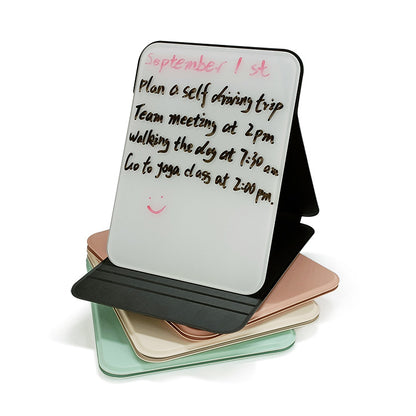 September 1 st
Plan a self driving trip
Team meeting at 2 pm
walking the dog at 7:30 am
Go to yoga class at 2:00 pm.